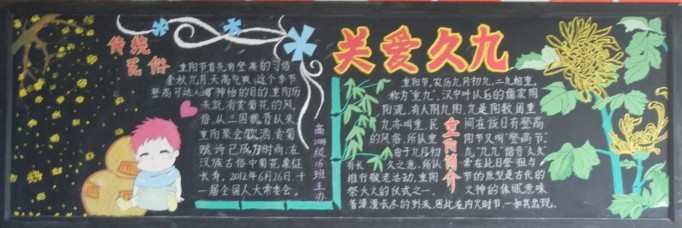 传统
民俗
重阳节首先有登高的习俗
金秋九月，天高气爽，这个季节
登高可达心旷神怡的目的，重阳历
来就有赏菊花的风
俗，从三国魏晋以来
重阳聚会饮酒赏菊
赋诗已成为时尚，在
汉族古俗中菊花象征
长寿。2012年6月26日，十
一届全国人大常委会。
班主办
关爱久九
重阳节，农历九月初九，二九相重，
称为"重九"，汉中叶以后的儒家阴
阳观，有六阴九阳。九是阳数，固重
九亦叫重
的风俗，所以重
由于九月初
有长久之意，所以
推行敬老活动，重阳
祭大火的仪式之一。
重阳简介
间在该日有登高
阳节又叫"登高节"。
九"九九"谐音"久久"
常在此日祭祖与
节的原型是古代的
火神的休眠意味
着漫漫长冬的到来，因此在内火时节，一如其出现。